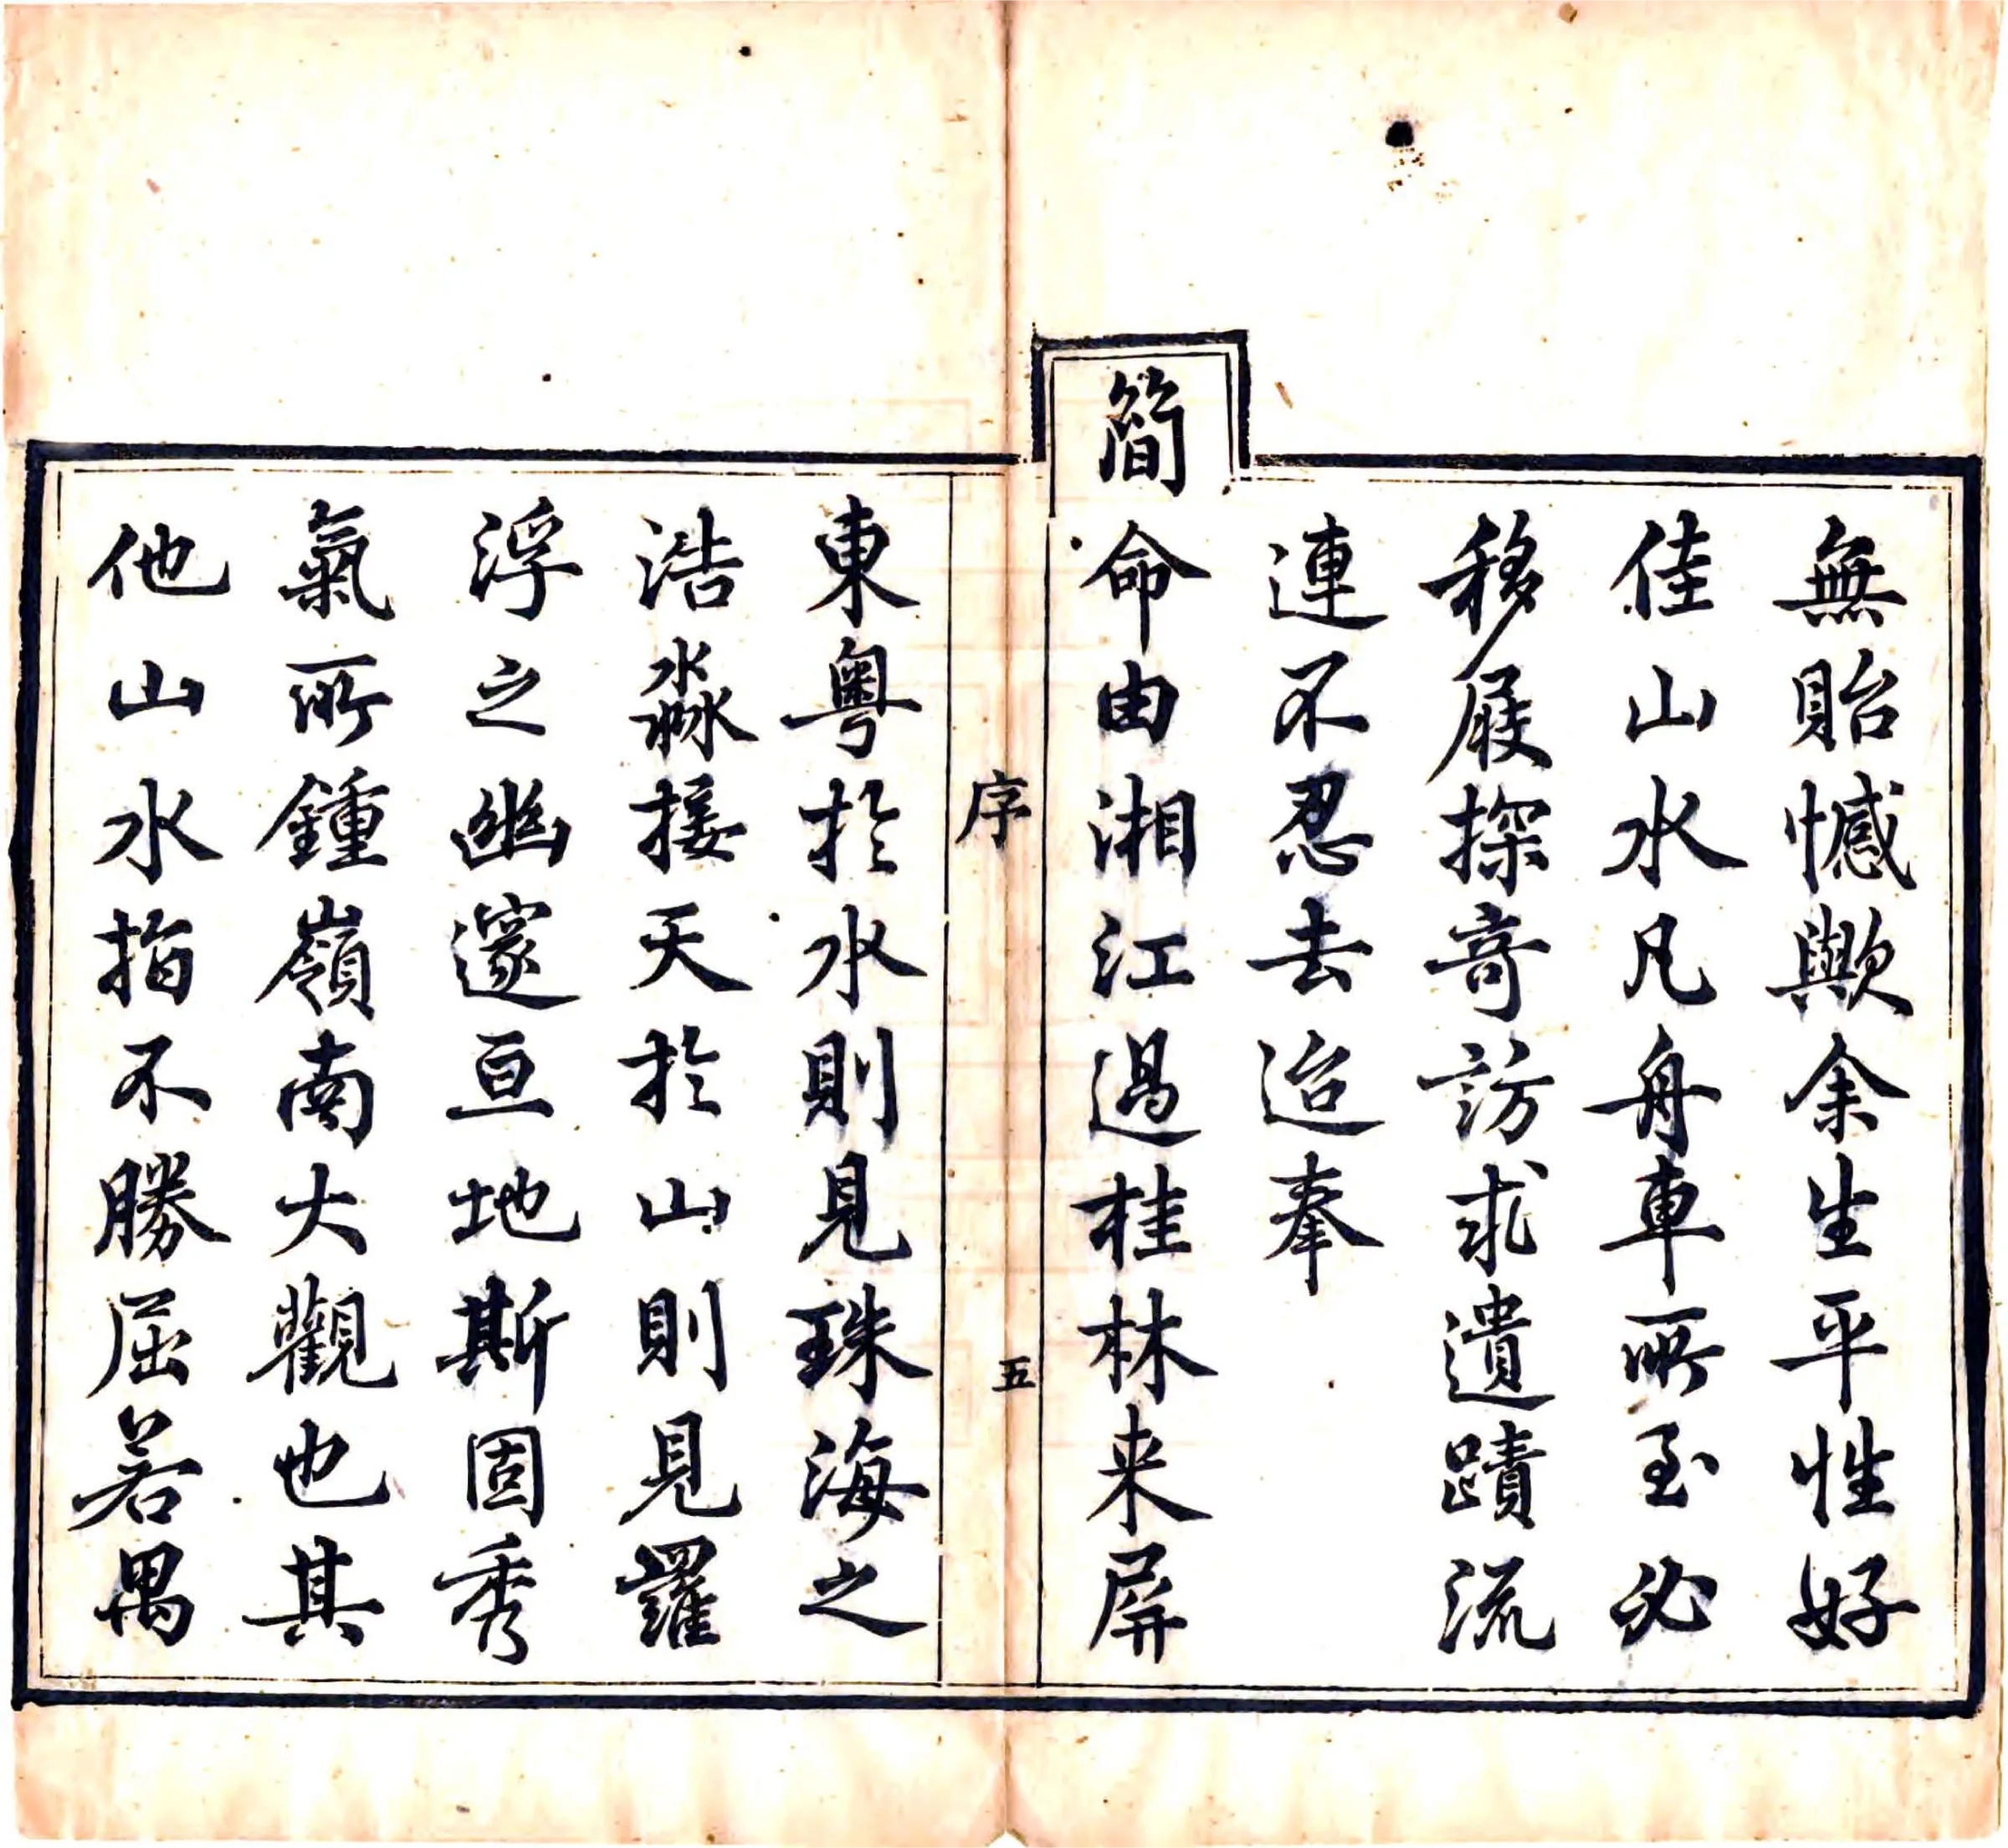 無貽憾歟余生平性好
佳山水凡舟車所至必
移屐探奇訪求遺蹟流
連不忍去迨奉
簡命由湘江過桂林来屏
序
五
東粤於水則見珠海之
浩淼接天於山則見羅
浮之幽邃亘地斯固秀
氣所鍾嶺南大觀也其
他山水指不勝屈若禺